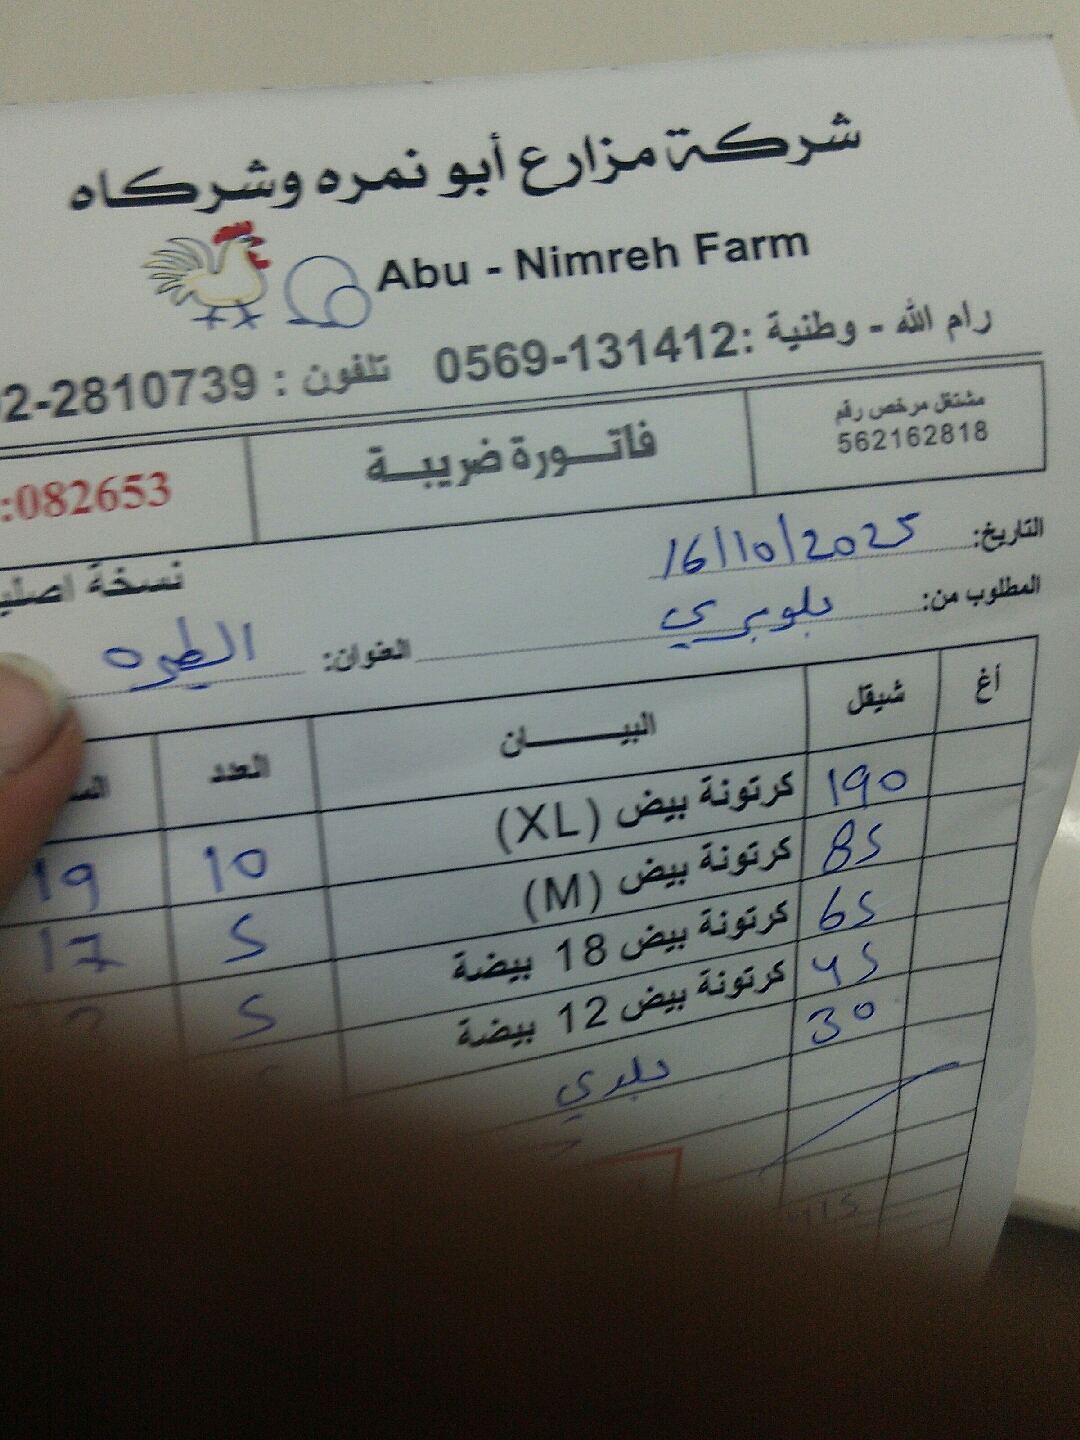 شركة مزارع أبو نمره وشركاه
Abu - Nimreh Farm
رام الله - وطنية: 0569-131412 تلفون: 02-2810739
مشتغل مرخص رقم
562162818
فاتورة ضريبة
:082653
التاريخ: 16/10/2025
نسخة
المطلوب من: بلوبري العنوان: الطيره
أغ شيقل البيان العدد
190 كرتونة بيض (XL) 10 19
85 كرتونة بيض (M) 5 17
65 كرتونة بيض 18 بيضة 5
45 كرتونة بيض 12 بيضة
30 بلدي
415